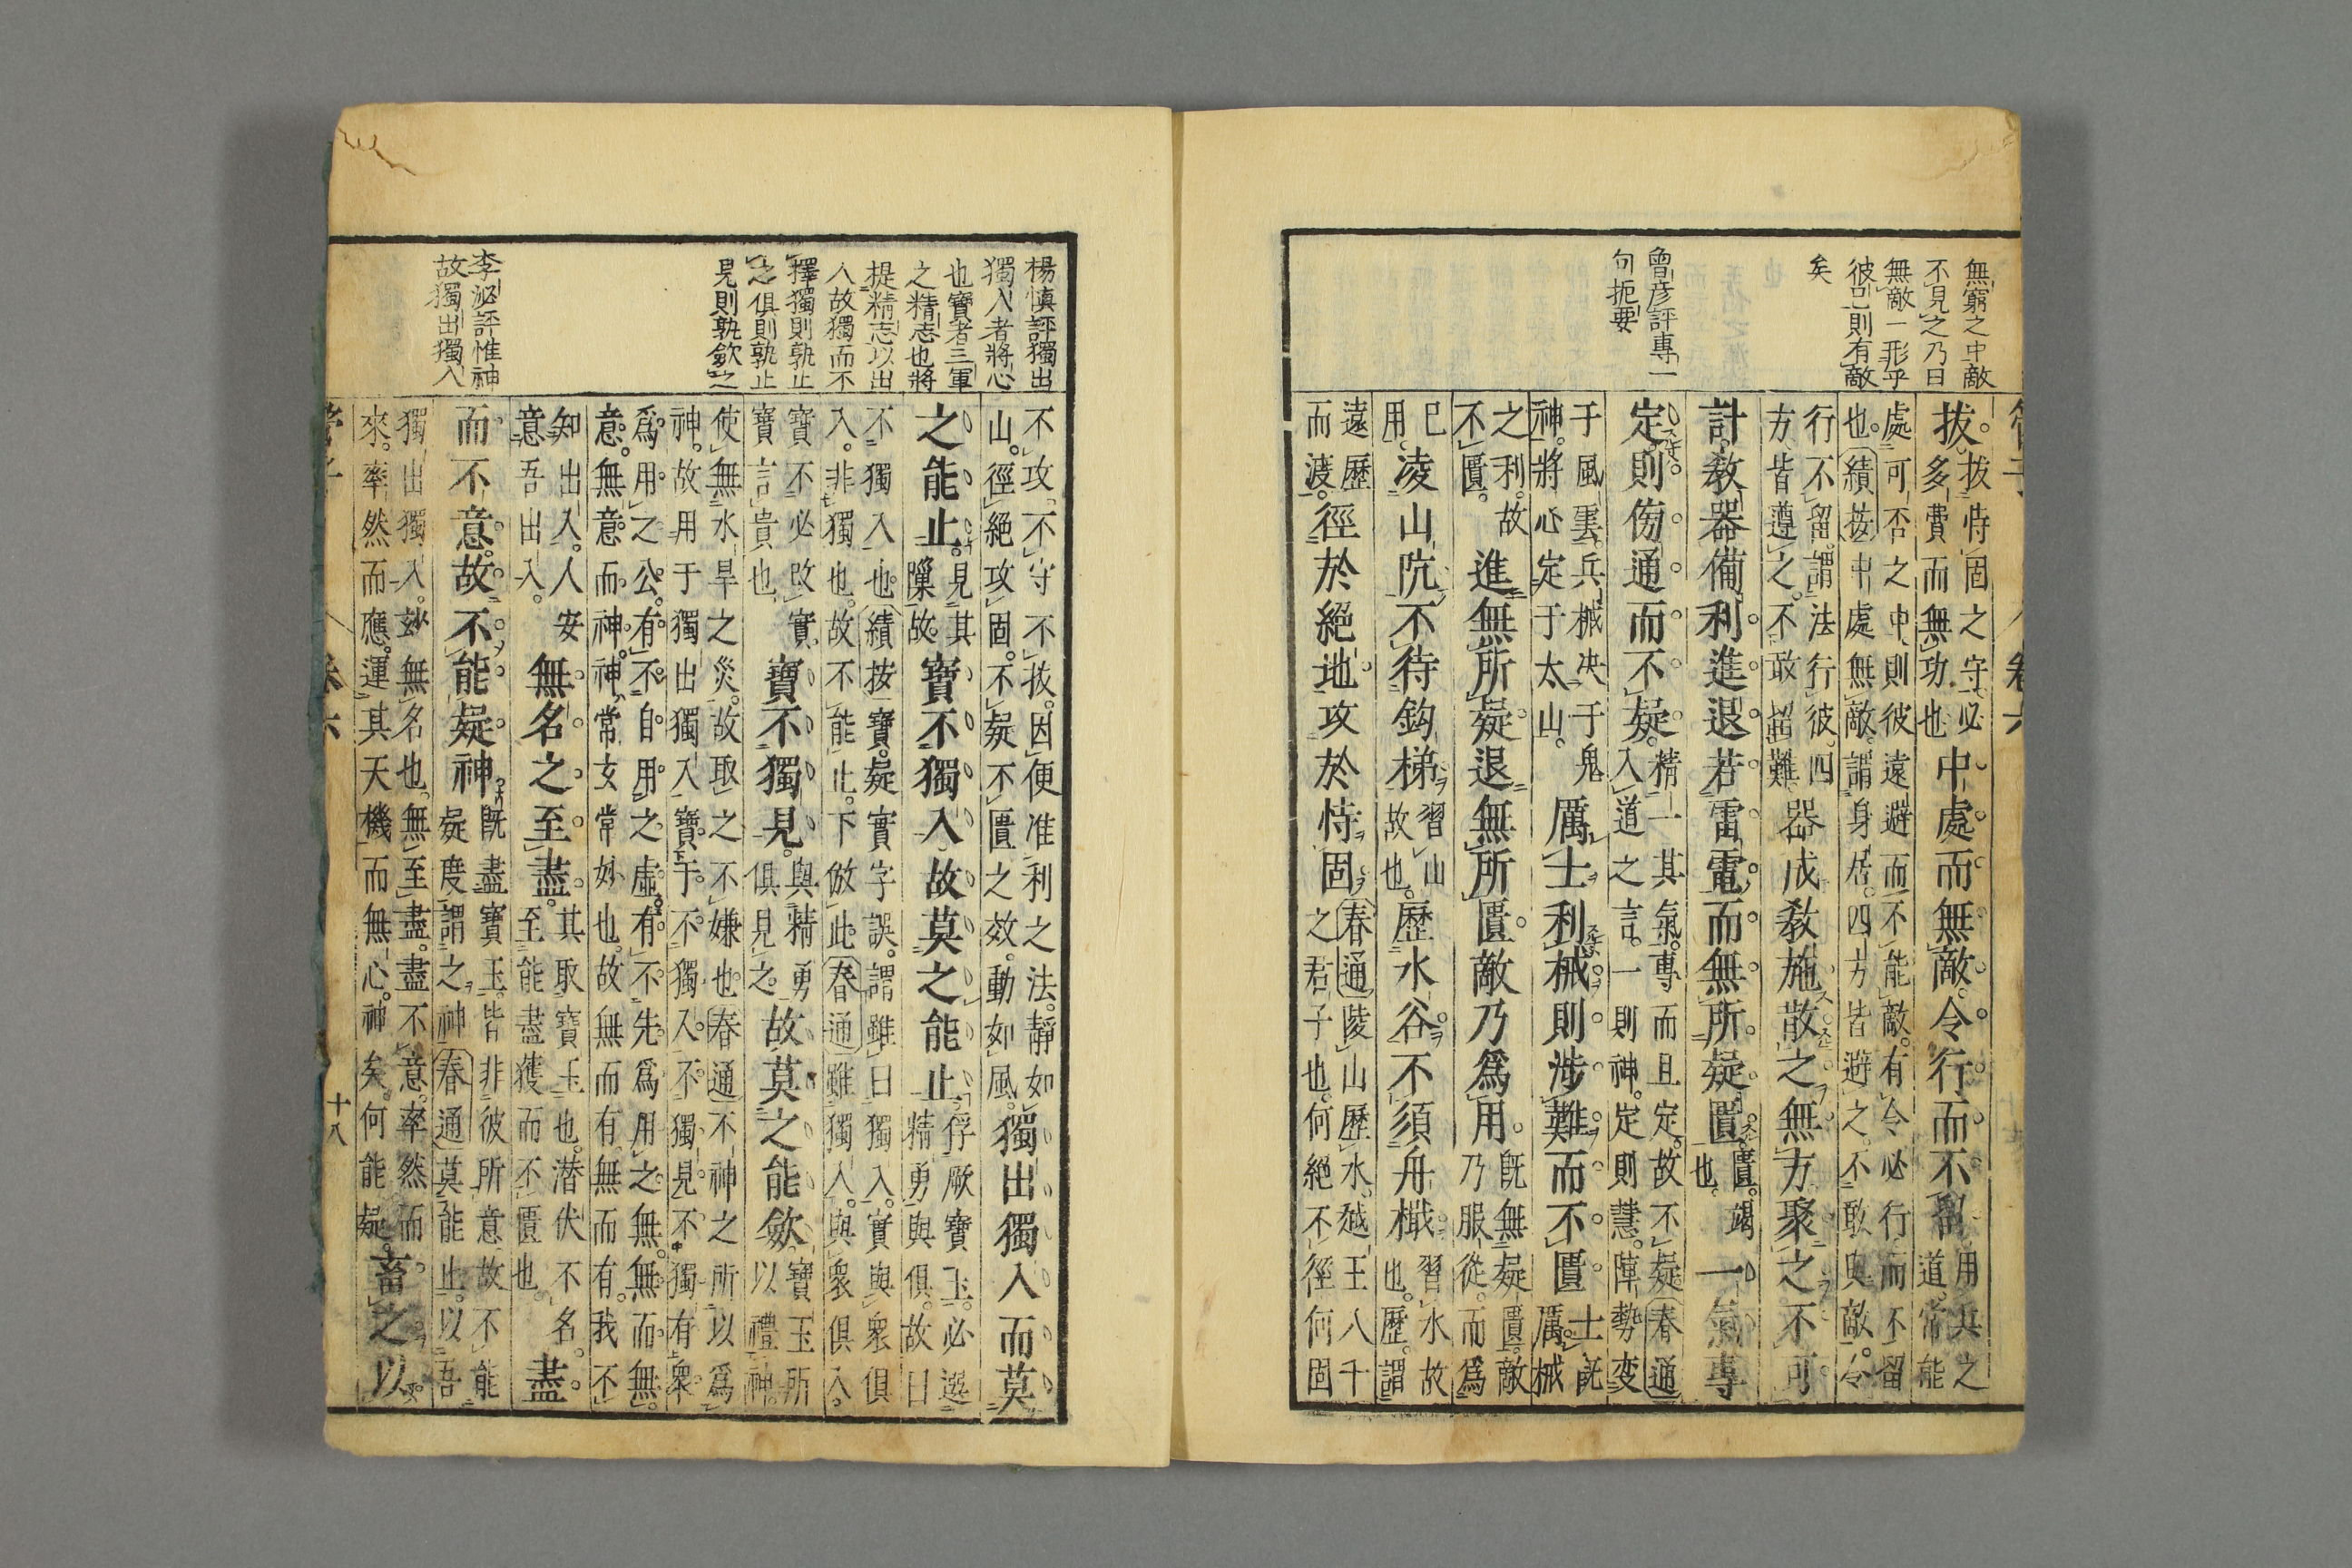 無窮之中敵
不見之乃曰
無敵一形乎
彼已則有敵
矣
曾彦評專一
句扼要
管子
卷六
拔。拔恃固之守。必
多費而無功也
中處而無敵。令行而不留。用兵之
道。常能
處可否之中則彼遠避而不能敵。有令必行而不留
也。績按中處無敵。謂身居。四方皆避之。不敢與敵。令
行不留。謂法行彼。四
方皆遵之。不敢留難
器成教施。散之無方。聚之不可
計。教器備利。進退若雷電。而無所疑匱。匱。竭
也。
一氣專
定。則傍通而不疑。精一其氣。專而且定。故不疑春通
入道之言。一則神。定則慧。陣勢变
于風雲。兵械决于鬼
神。將心定于太山。
厲士利械。則涉難而不匱。士既
厲。械
之利。故
不匱。
進無所疑。退無所匱。敵乃爲用。既無疑匱。敵
乃服從。而爲
已
用。
凌山阬。不待鈎梯。習山
故也。
歷水谷。不須舟檝。習水故
也。歷。謂
遠歷
而渡。
徑於絕地。攻於恃固。春通陵山歷水。越王八千
之君子也。何絕不徑何固
楊慎評獨出
獨入者將心
也寶者三軍
之精志也將
提精志以出
入故獨而不
擇獨則孰止
之俱則孰止
見則孰斂之
李泌評惟神
故獨出獨入
不攻。不守不拔。因便准利之法。靜如
山。徑絕攻固。不疑不匱之效。動如風。
獨出獨入而莫
之能止。見其
隟故。
寶不獨入。故莫之能止。俘厥寶玉。必選
精勇與俱。故曰
不獨入也績按寶。疑實字誤。謂雖曰獨入。實與衆俱
入。非獨也。故不能止。下倣此。春通雖獨入。與衆俱入。
寶不必改實
寶言貴也
寶不獨見。與精勇
俱見之。
故莫之能斂。寶玉所
以禮神。
使無水旱之災。故取之不嫌也。春通不神之所以爲
神。故用于獨出獨入寶于。不獨入。不獨見。不獨有衆
爲用之公。有不自用之虛。有不先爲用之無。無而無。
意。無意而神。神常女常妙也。故無而有。無而有。我不
知出入。人安
意吾出入。
無名之至。盡。其取寶玉也。潜伏不名。
至能盡獲而不匱也。
盡
而不意。故不能疑神。既盡寶玉。皆非彼所意。故不能
疑度。謂之神春通莫能止。以吾
獨出獨入。妙無名也。無至盡。盡不意。率然而
來。率然而應。運其天機而無心。神矣。何能疑。
畜之以
管子
卷六
十八